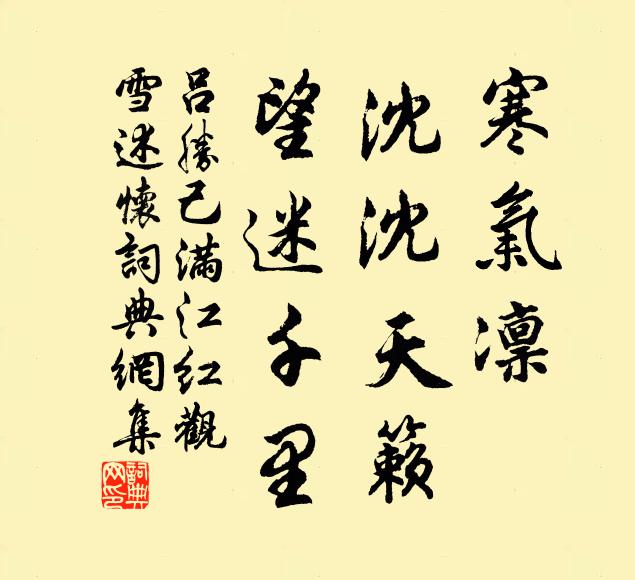 寒氣凛
沈沈天籟
望迷千里
呂勝己滿江紅觀
雪述懷詞典網集
詞典
网印